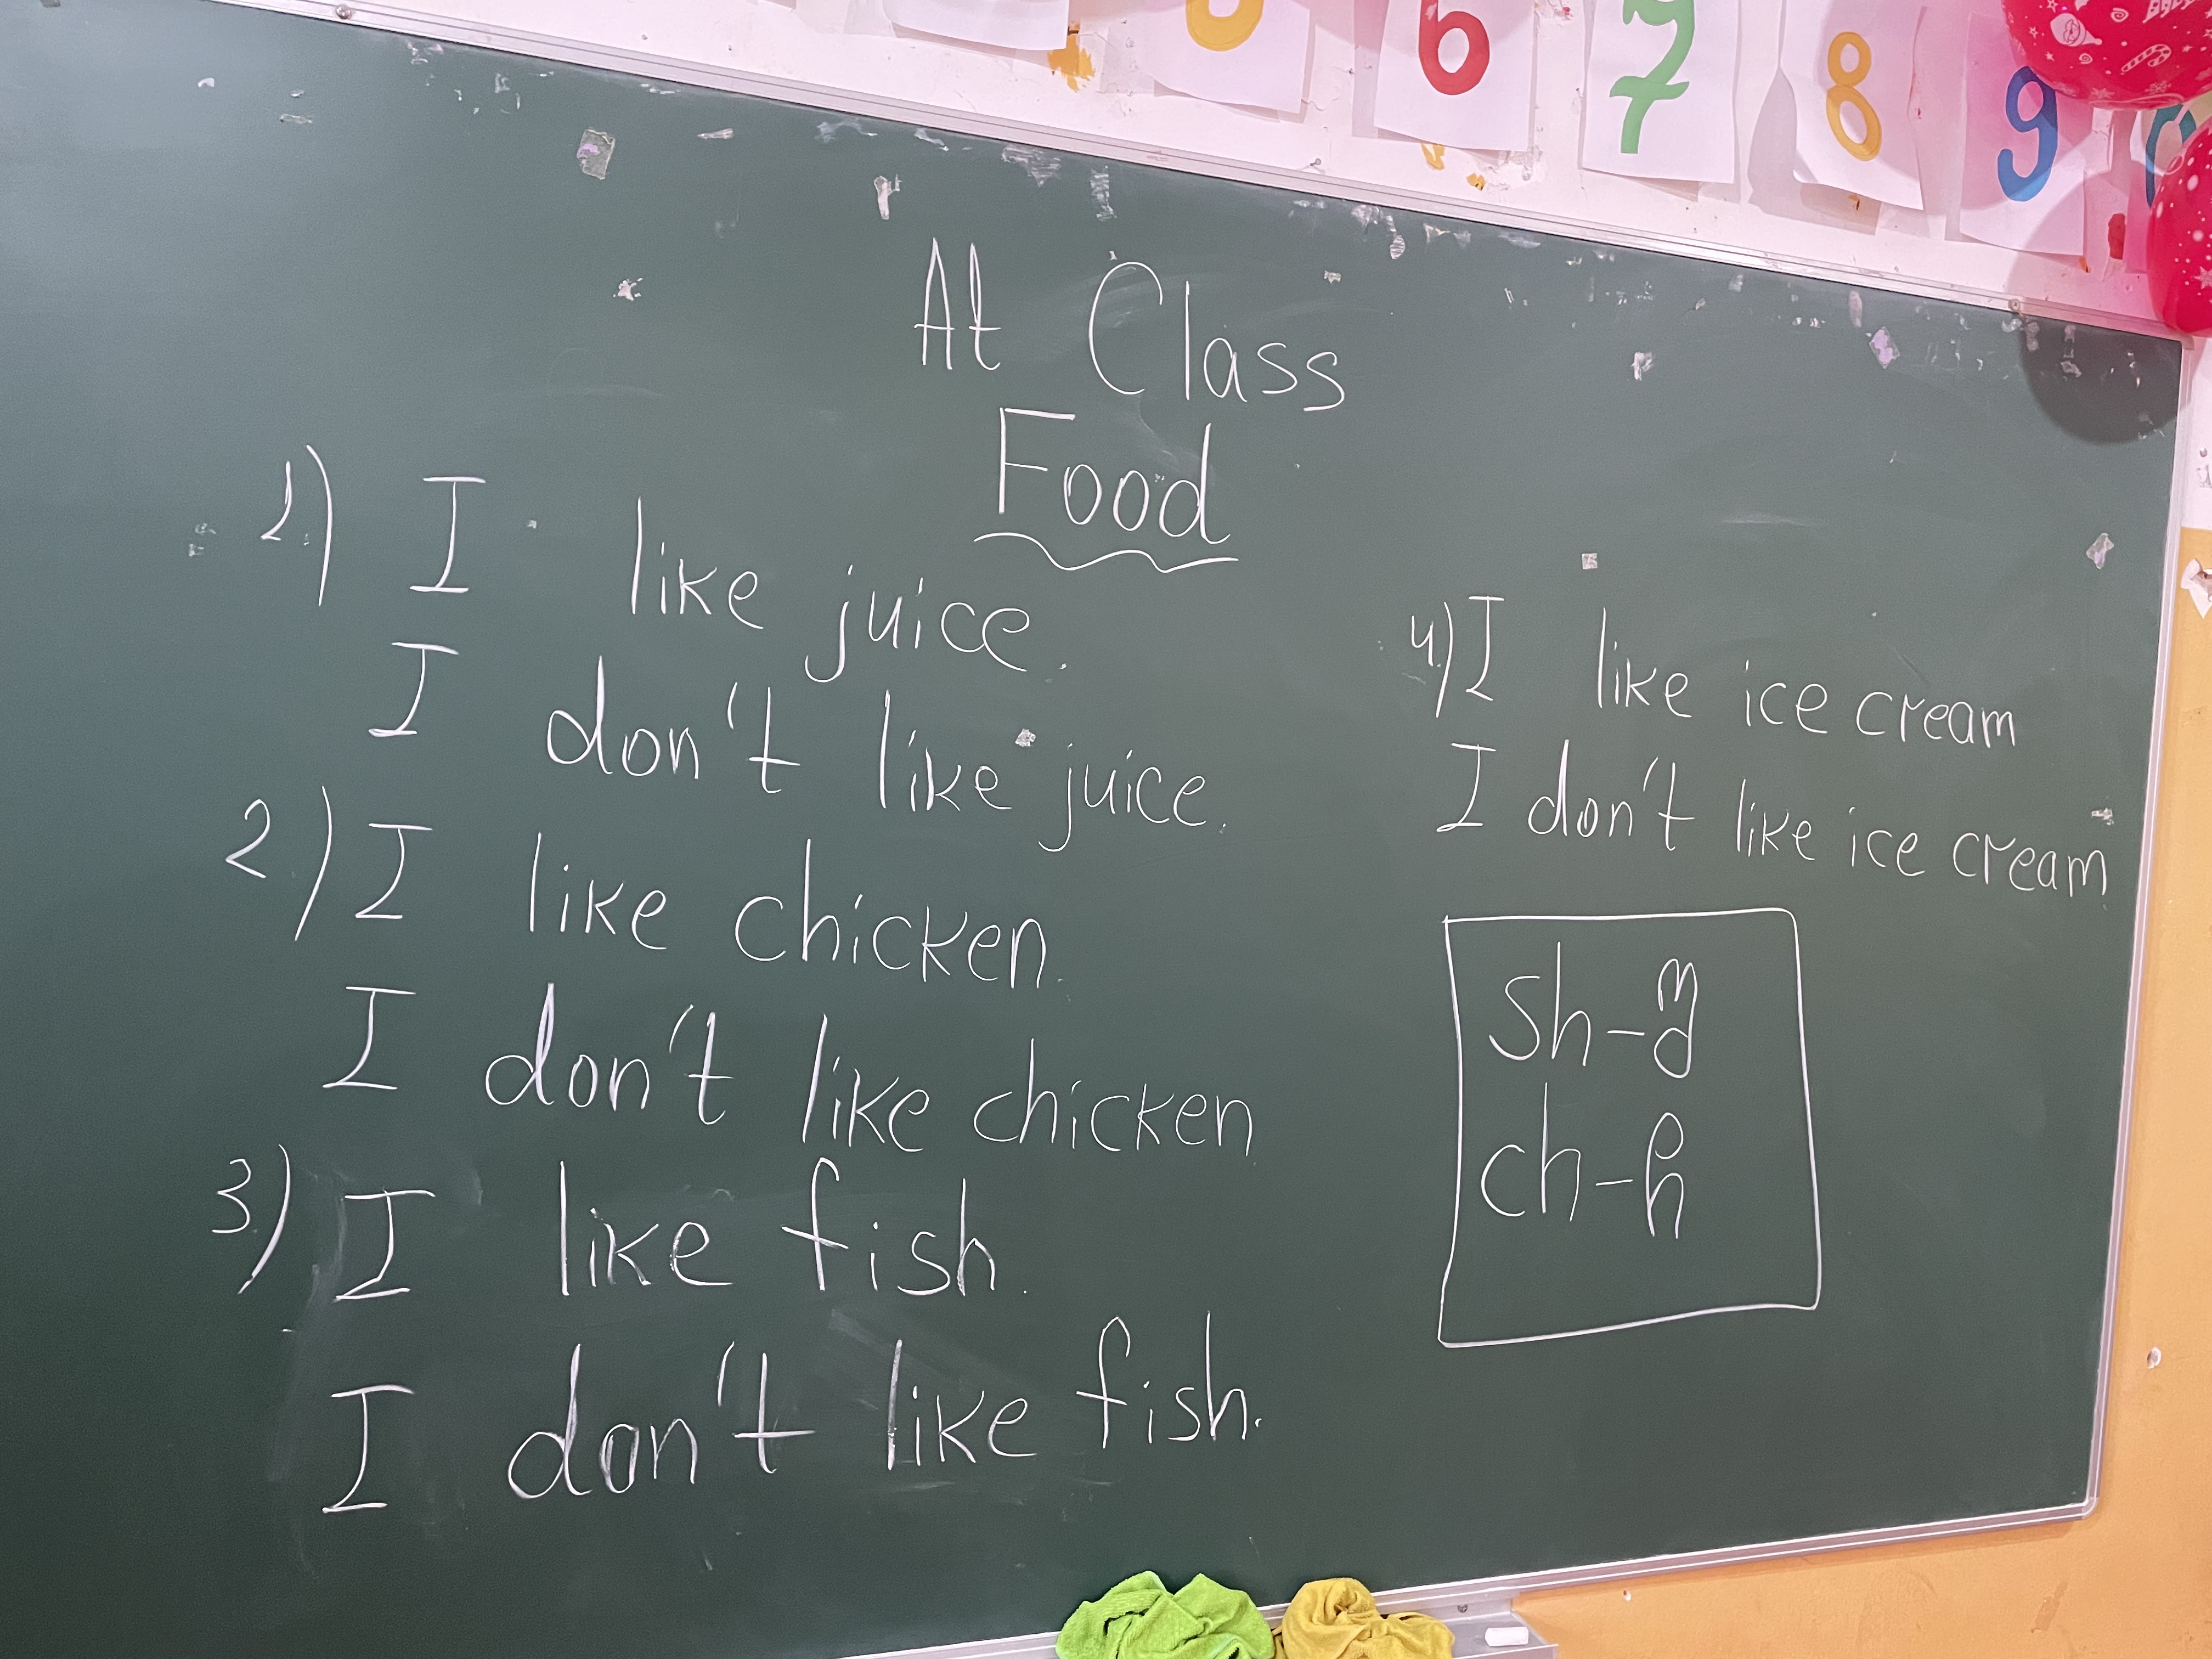 6 7 8 9
At Class
Food
1) I like juice.
I don't like juice.
2) I like chicken.
I don't like chicken
3) I like fish.
I don't like fish.
4) I like ice cream
I don't like ice cream
sh-შ
ch-ჩ